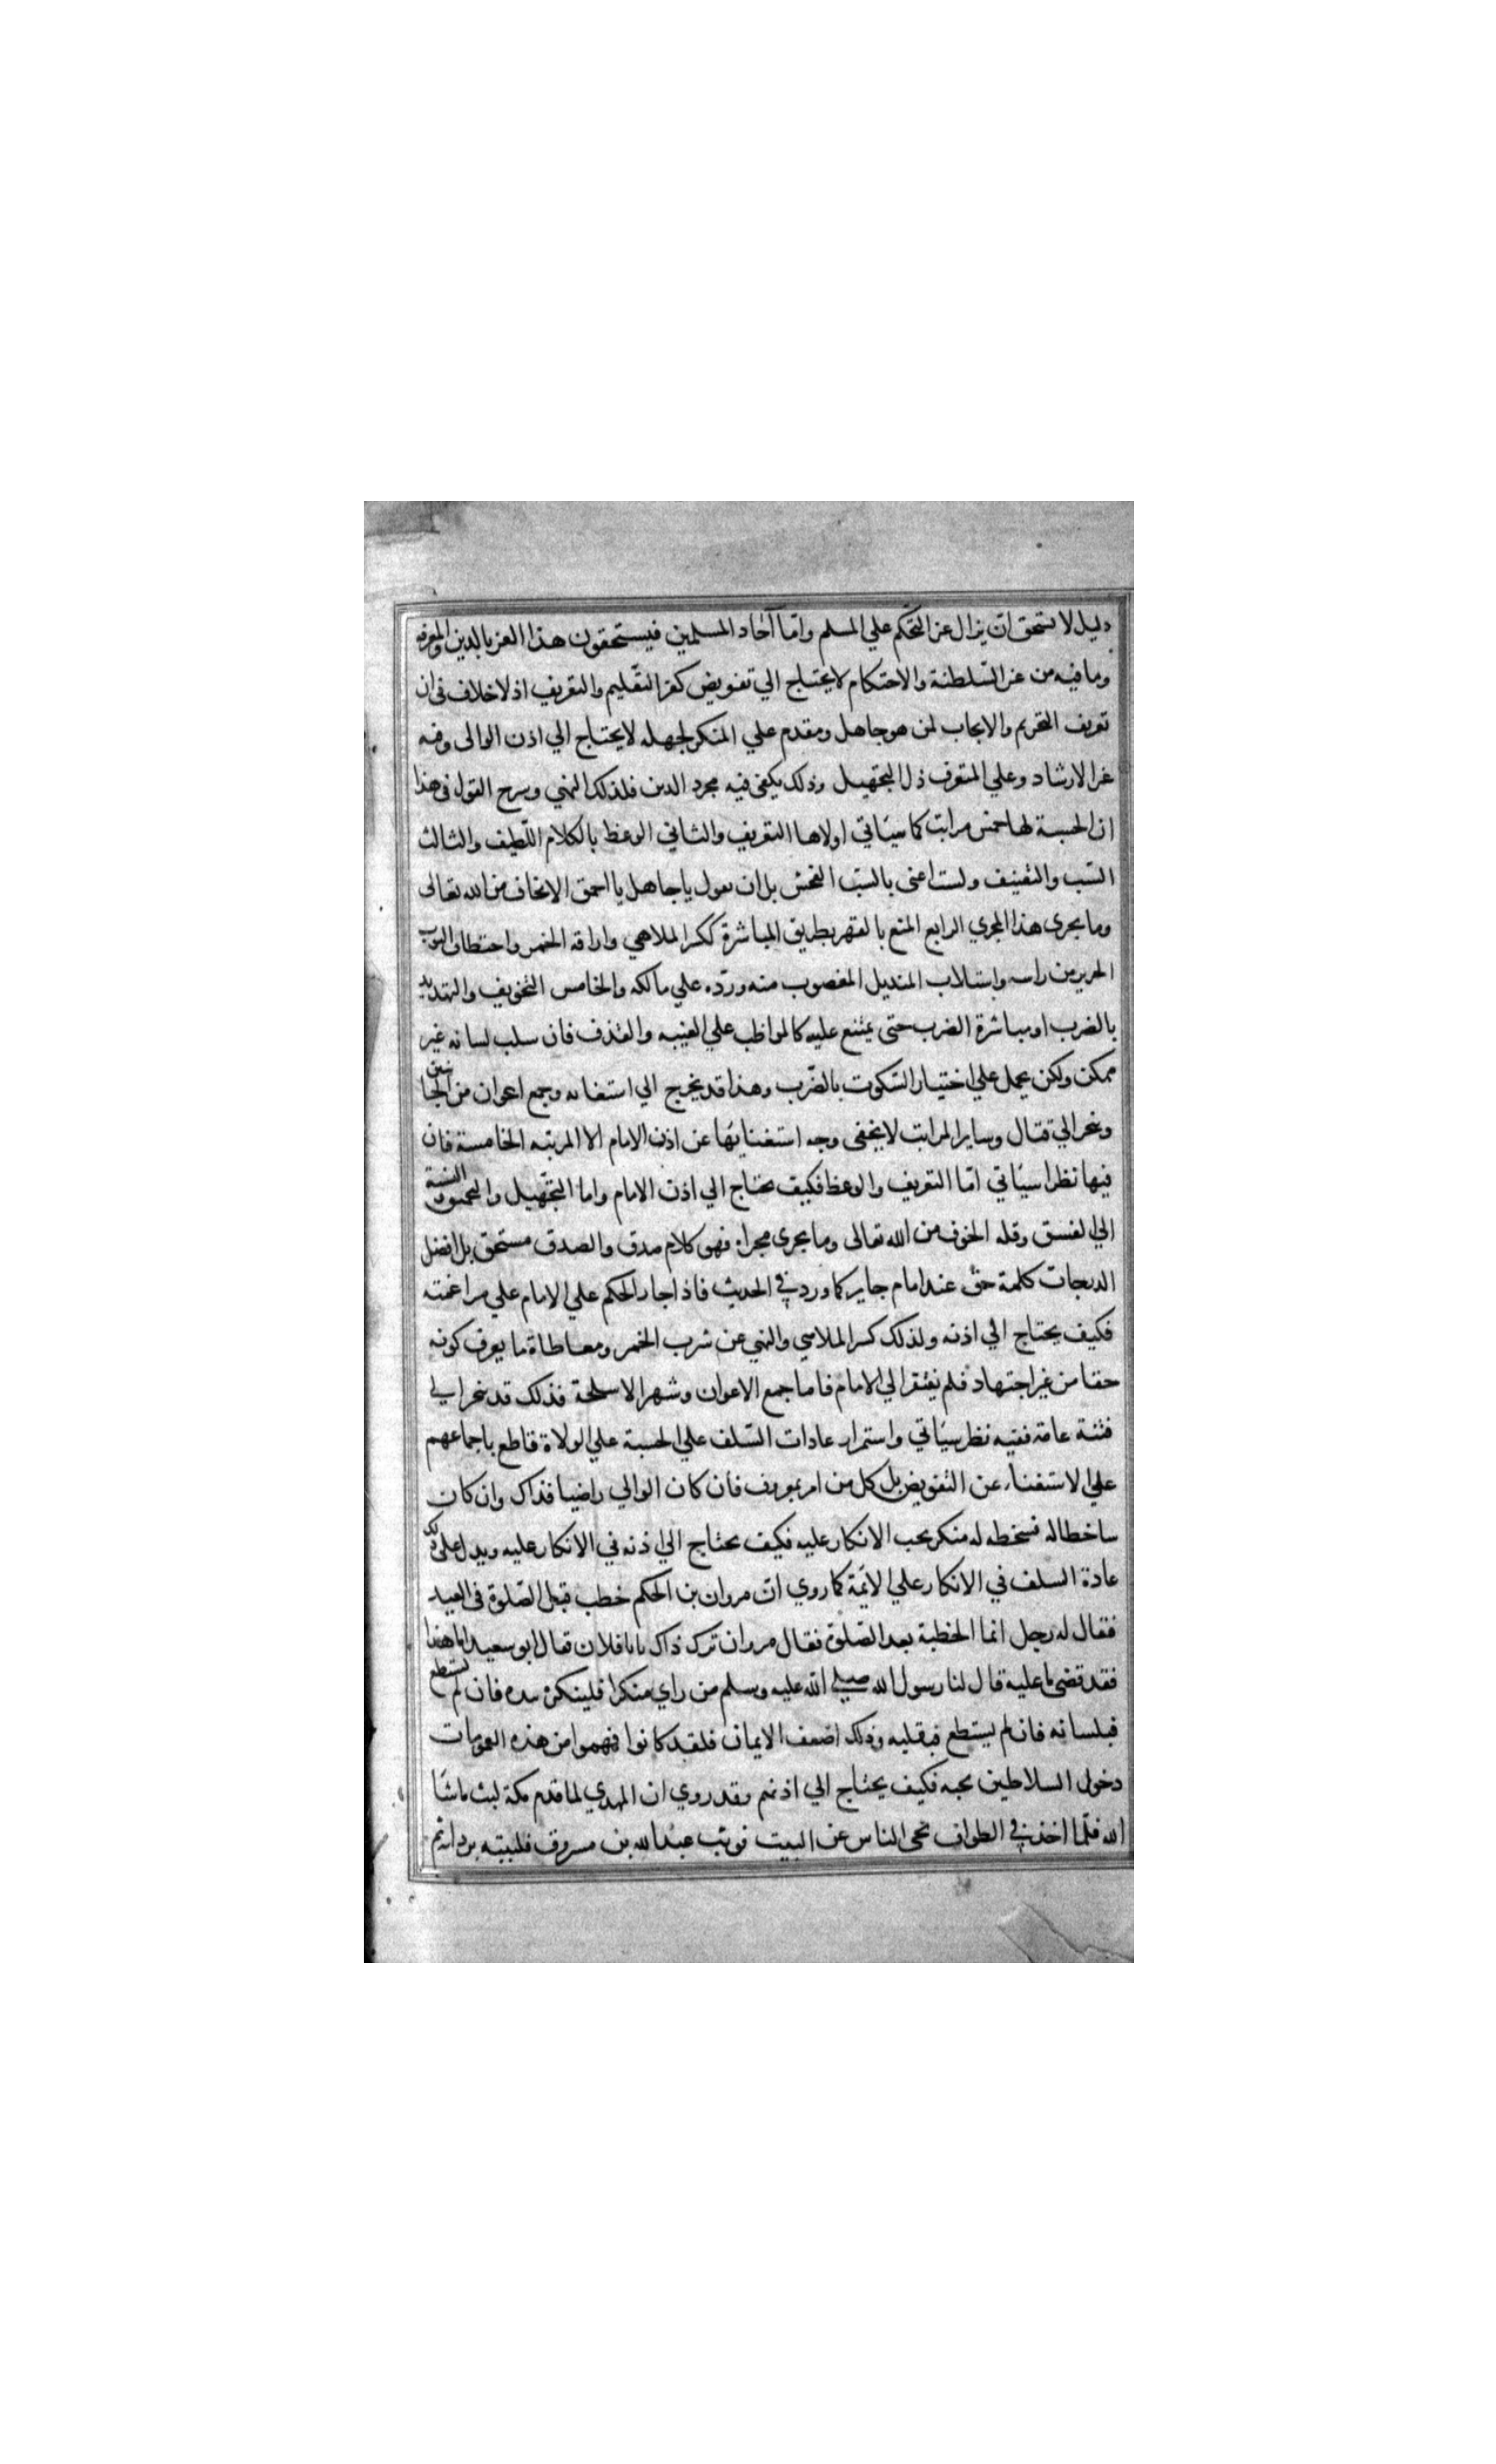 دليل لا يستحق ان ينال عز التحكم علي المسلم وامّا آحاد المسلمين فيستحقون هذا العز بالدين والمعرفه
وما فيه من عز السّلطنة والاحتكام لا يحتاج الي تفويض كعز التعليم والتعريف اذ لا خلاف في ان
تعريف التحريم والايجاب لمن هو جاهل ومقدم علي المنكر لجهله لا يحتاج الي اذن الوالى وفيه
عز الارشاد وعلي المتعرف ذل التجهيل وذلك يكفي فيه مجرد الدين فلذلك النهي وشرح القول في هذا
ان الحسبة لها خمس مراتب كما سيَاتي اولاها التعريف والثاني الوعظ بالكلام اللّطيف والثالث
السّب والتعنيف ولست اعني بالسّب الفحش بل ان تقول يا جاهل يا احمق الا تخاف من الله تعالى
وما يجري هذا المجري الرابع المنع بالقهر بطريق المباشرة ككسر الملاهي واراقه الخمر واختطاف الثوب
الحرير من راسه واستلاب المنديل المغصوب منه وردّه علي مالكه والخامس التخويف والتهديد
بالضرب او مباشرة الضرب حتى يمتنع عليه كالمواظب علي الغيبه والقذف فان سلب لسانه غير
ممكن ولكن يحمل علي اختيار السّكوت بالضّرب وهذا قد يخرج الي استعانه وجمع اعوان من الجانبين
ويجر الي قتال وساير المراتب لا يخفى وجه استغنايها عن اذن الامام الا المرتبه الخامسة فان
فيها نظرا سيَاتي امّا التعريف والوعظ فكيف يحتاج الي اذن الامام واما التجّهيل والتحميق والنسبة
الي الفسق وقله الخوف من الله تعالى وما يجري مجراه فهو كلام صدق والصدق مستحق بل افضل
الدرجات كلمة حق عند امام جاير كما ورد في الحديث فاذا جاز الحكم علي الامام علي مراغمته
فكيف يحتاج الي اذنه ولذلك كسر الملاهي والنهي عن شرب الخمر ومعاطاة ما يعرف كونه
حقا من غير اجتهاد فلم يفتقر الي الامام فاما جمع الاعوان وشهر الاسلحة فذلك قد يجر الي
فتنة عامة ففيه نظر سيَاتي واستمرار عادات السّلف علي الحسبة علي الولاة قاطع باجماعهم
علي الاستغناء عن التفويض بل كل من امر بمعروف فان كان الوالي راضيا فذاك وان كان
ساخطا له فسخطه له منكر يجب الانكار عليه فكيف يحتاج الي اذنه في الانكار عليه ويدل علي ذلك
عادة السلف في الانكار علي الايَمة كما روي انّ مروان بن الحكم خطب قبل الصّلوة في العيد
فقال له رجل انما الخطبة بعد الصّلوة فقال مروان ترك ذاك يا با فلان فقال ابو سعيد اما هذا
فقد قضى ما عليه قال لنا رسول الله صلي الله عليه وسلم من راي منكرا فلينكره بيده فان لم يستطع
فبلسانه فان لم يستطع فبقلبه وذلك اضعف الايمان فلقد كانوا فهموا من هذه العمومات
دخول السلاطين تحته فكيف يحتاج الي اذنهم وقد روي ان المهدي لما قدم مكة لبث ما شآ
الله فلما اخذ في الطواف نحى الناس عن البيت فوثب عبد الله بن مرزوق فلببه بردائه ثم